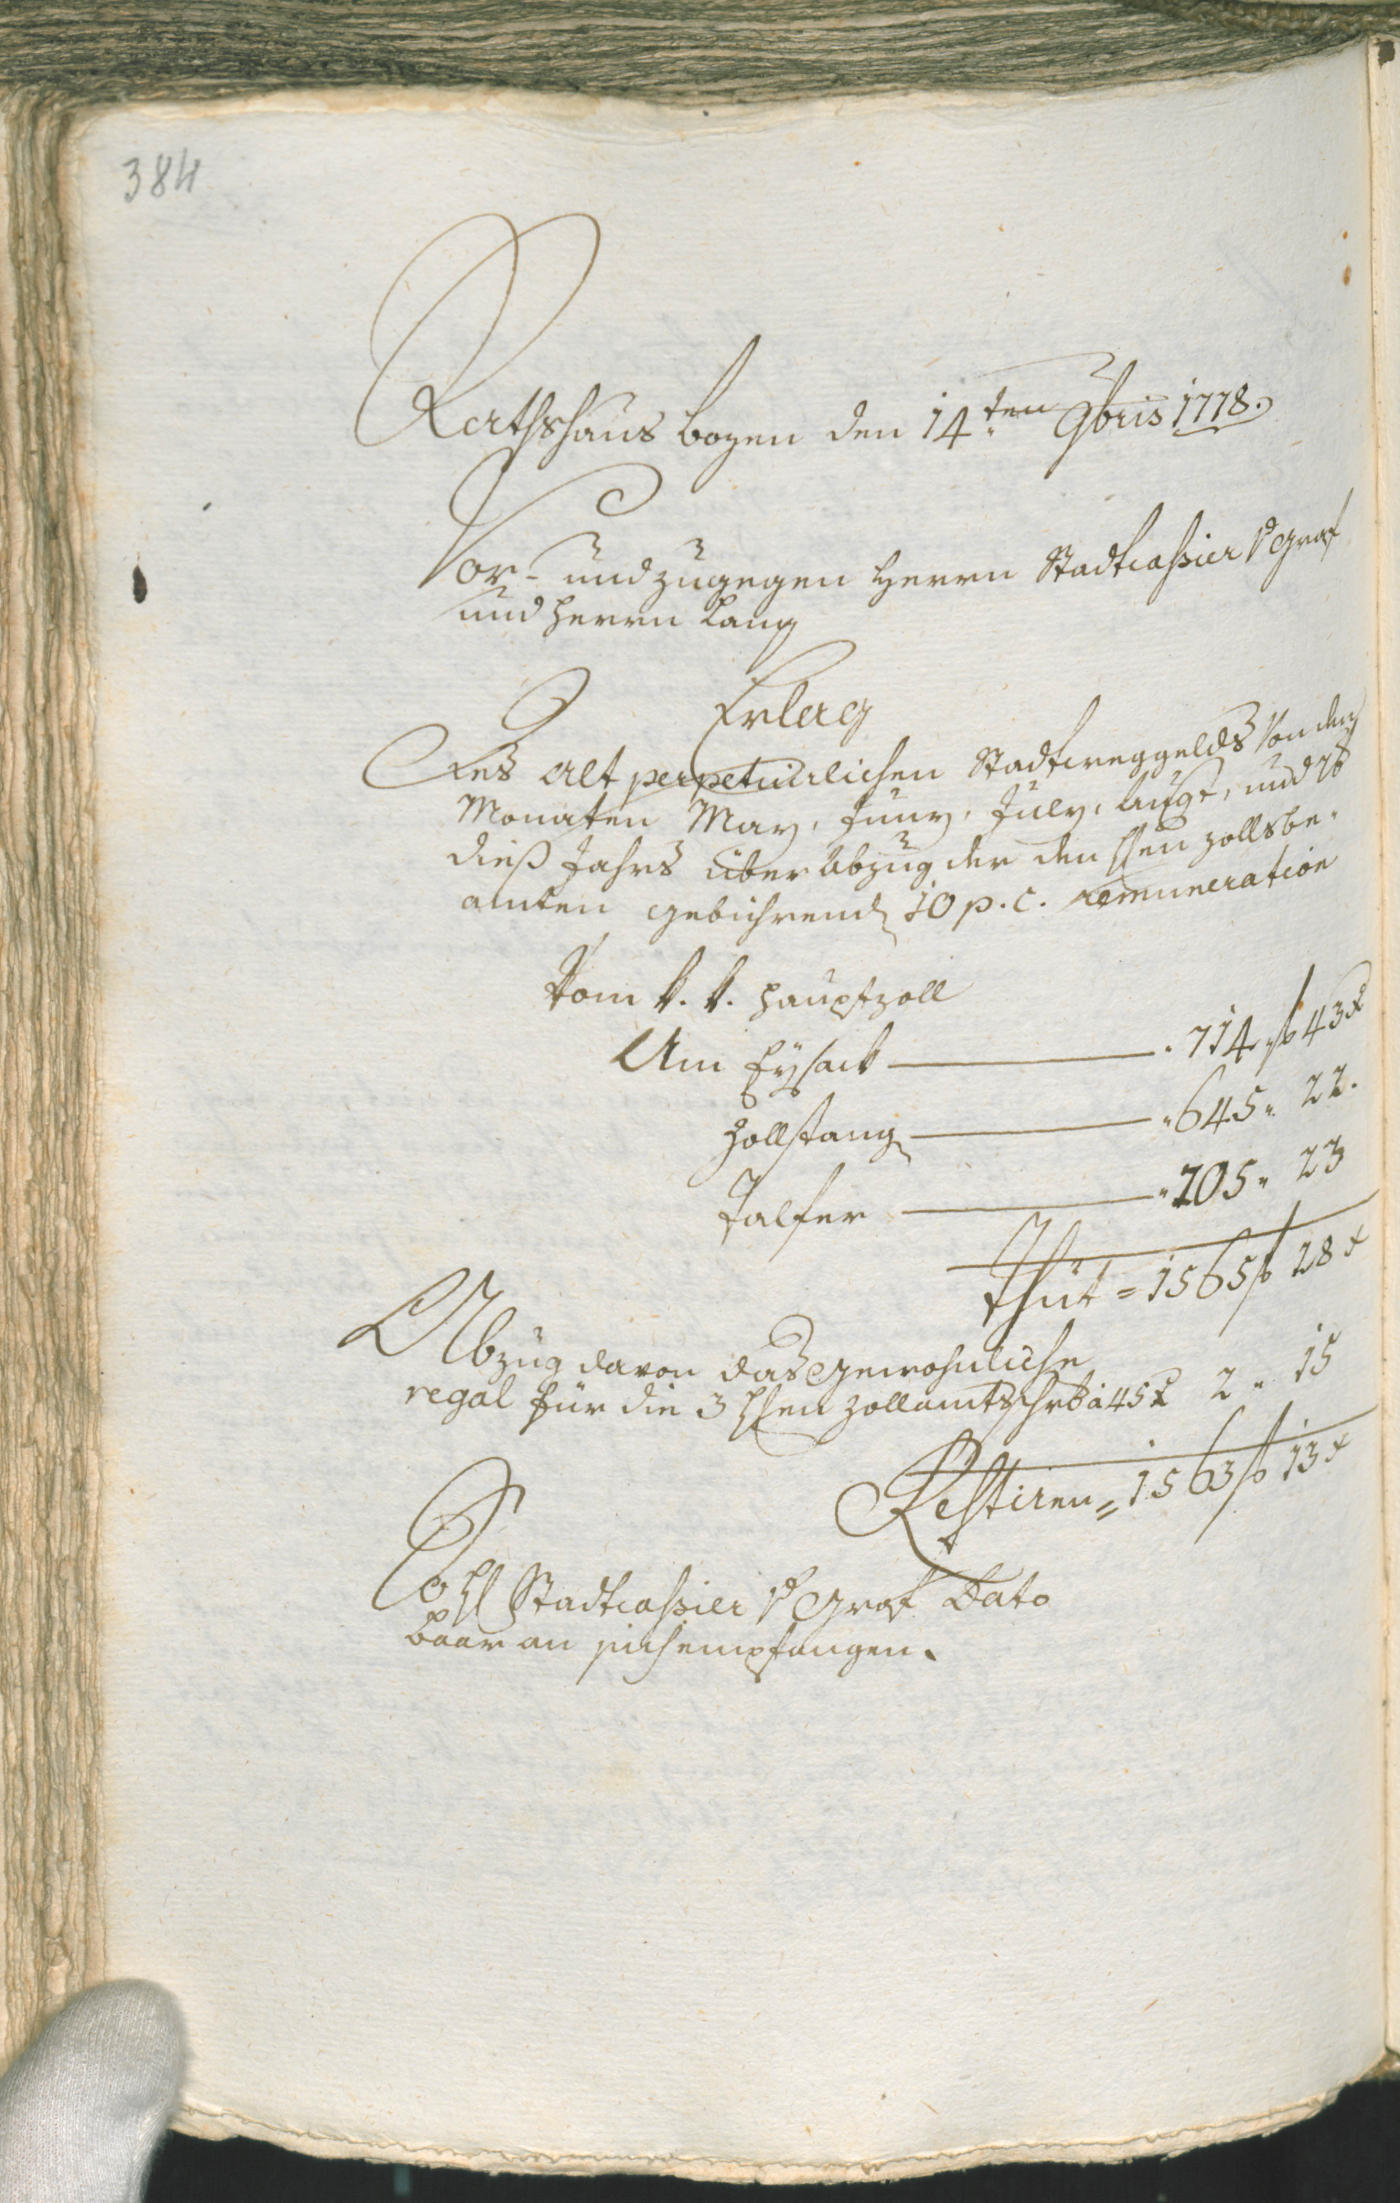 384
Rathshaus Bozen den 14ten 9bris 1778.
Vor- und zugegen Herrn Stadtcassier v Graf
und Herrn Lang
Erlag
Des alt perpetuirlichen Stadtweggelds von den
Monaten May, Juny, July, Augt, und 7b
dieß Jahrs über Abzug der den Hhen Zollsbe-
amten gebührend 10 p. C. remuneration
Vom k. k. Hauptzoll
Am Eysack — 714 f 43 x
Zollstang — 645 " 22.
Talfer — 205 " 23
Thut = 1565 f 28 x
Abzug davon das gewohnliche
regal für die 3 Hhen Zollamtschrbr à 45 x 2 " 15
Restiren = 1563 f 13 x
So Hl Stadtcassier v Graf Dato
baar an sich empfangen.